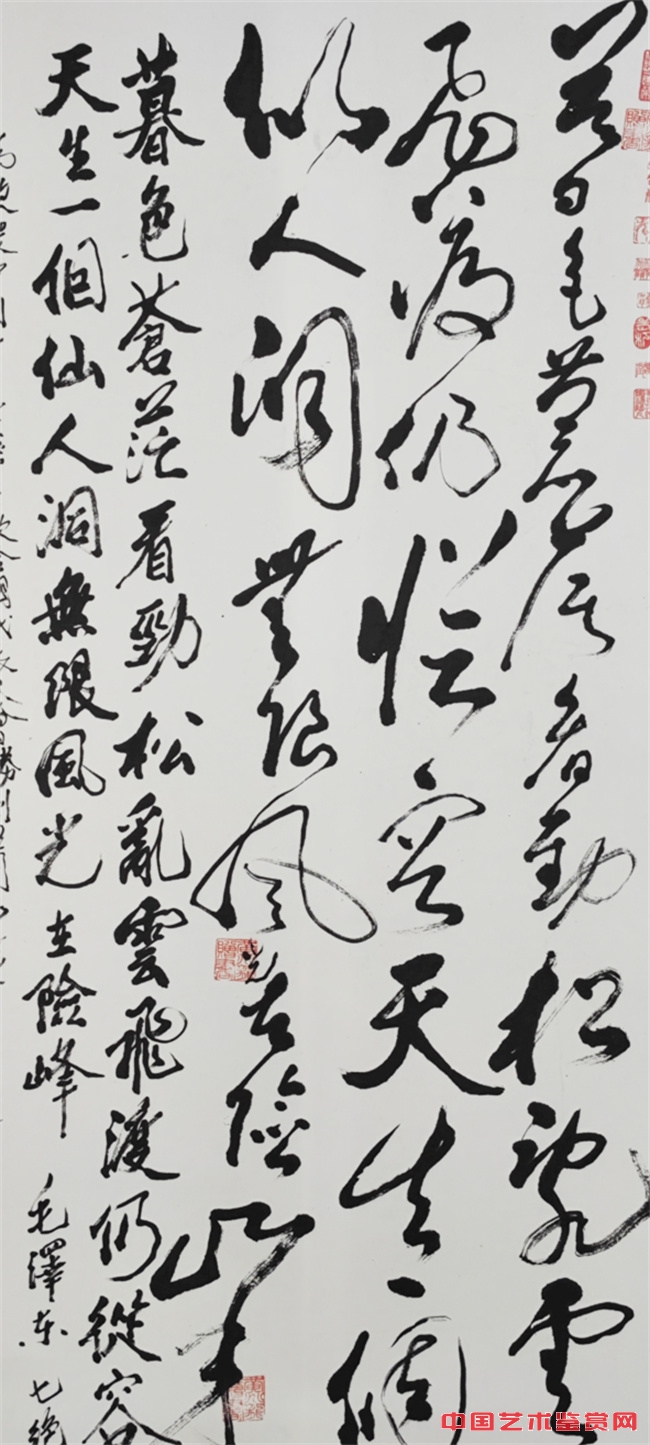 暮色蒼茫看勁松亂雲
飛渡仍從容天生一個
仙人洞無限風光在險峰
暮色蒼茫看勁松亂雲飛渡仍從容
天生一個仙人洞無限風光在險峰 毛澤東 七絕
中国艺术鉴赏网